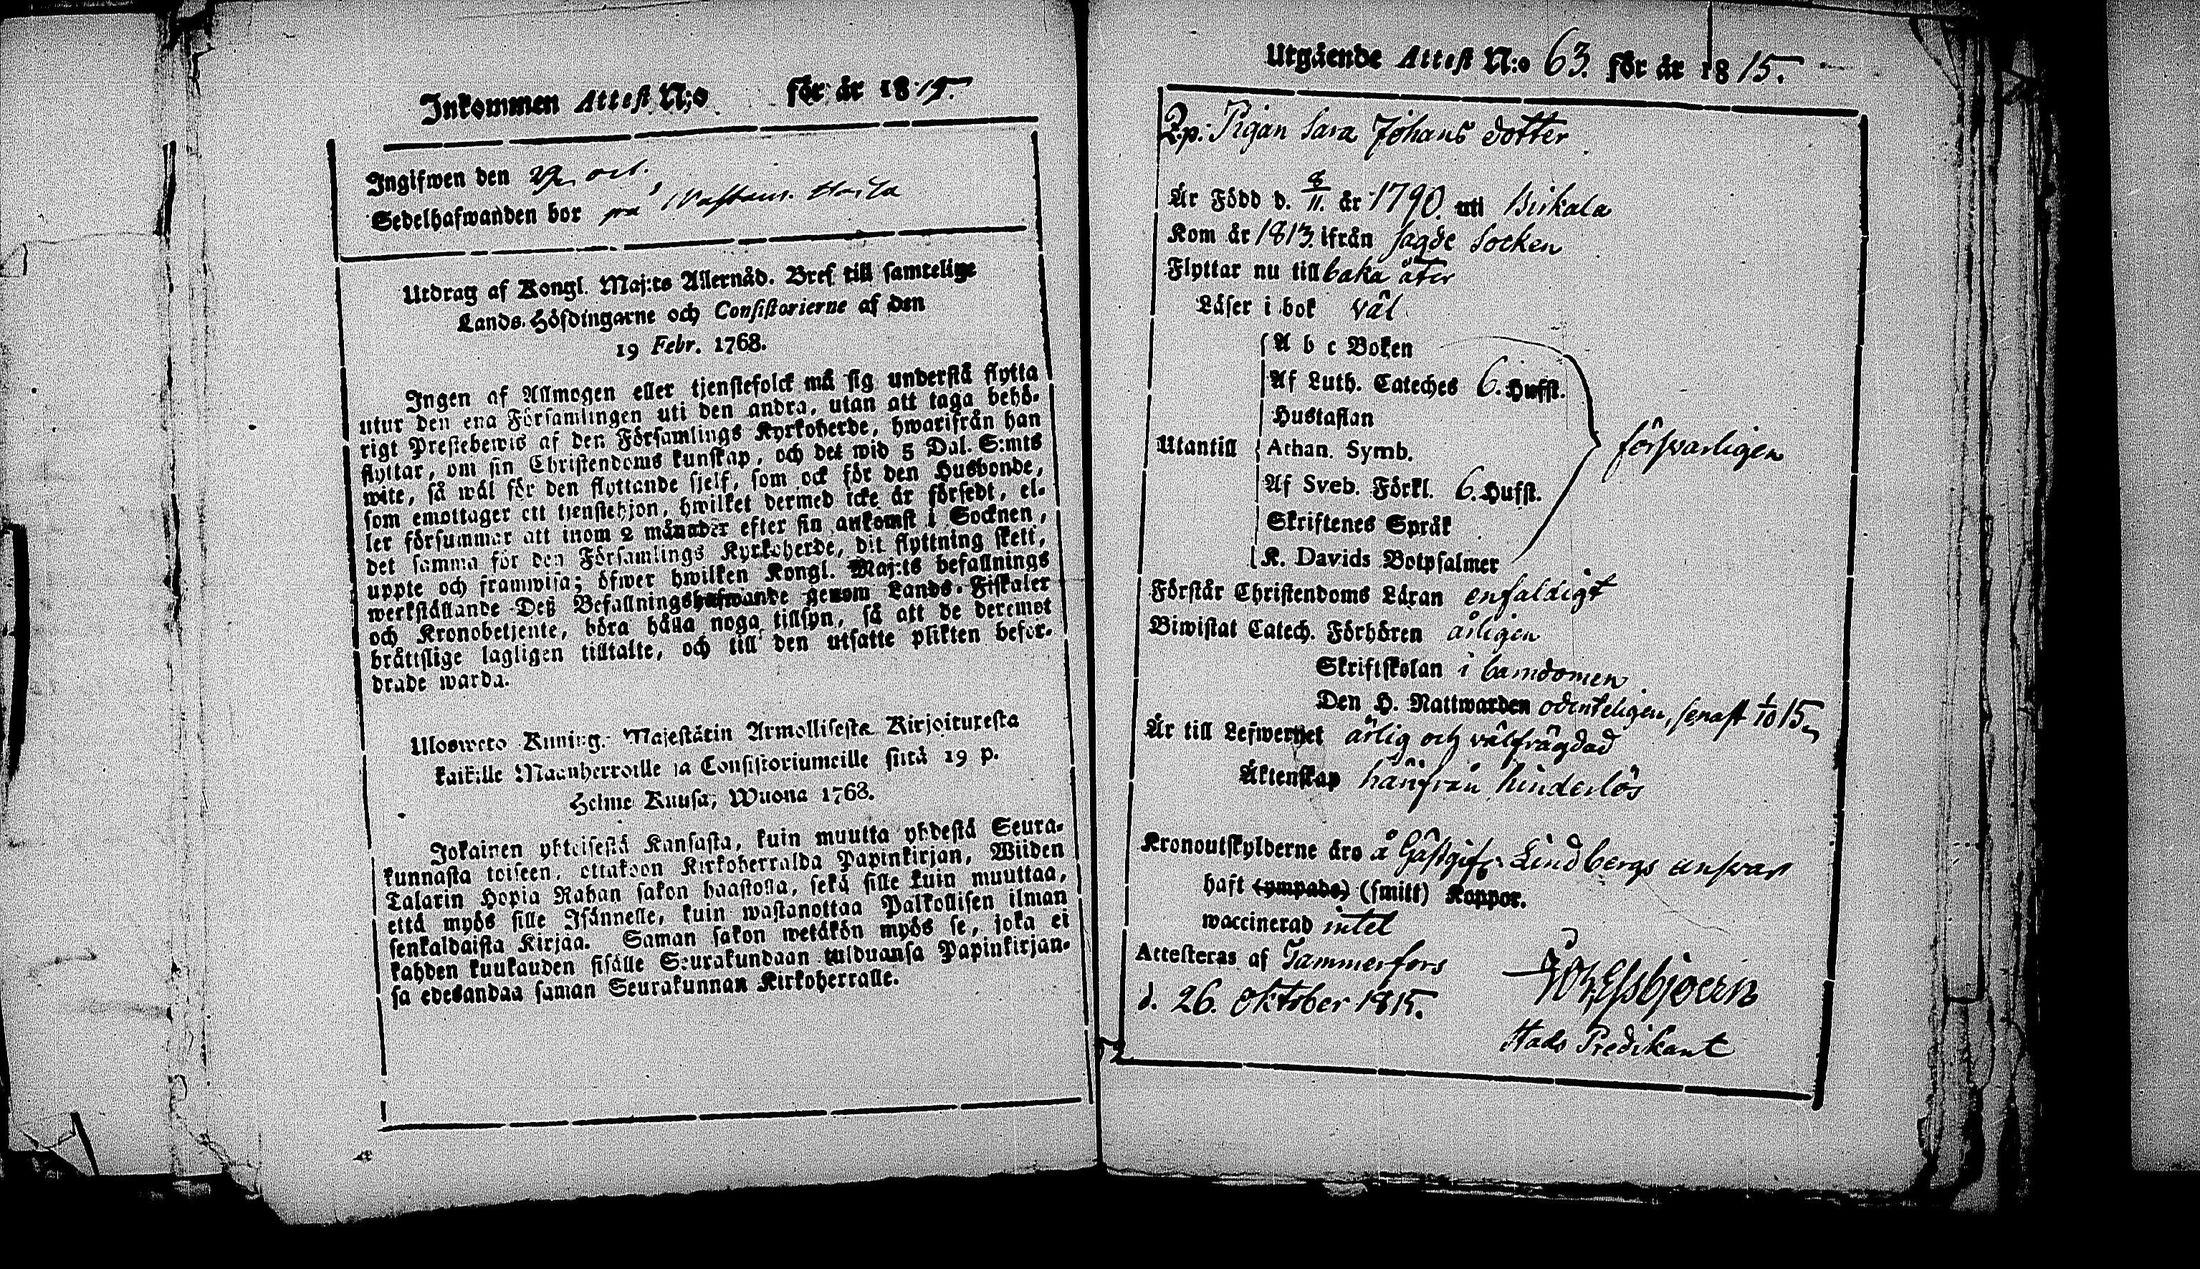 Inkommen Attest N:o för år 1815.
Ingifwen den 29 oct.
Sedelhafwanden bor på
Utdrag af Kongl. Maj:ts Allernåd. Bref till samtelige
Lands-Höfdingarne och Consistorierne af den
19 Febr. 1768.
Ingen af Allmogen eller tjenstefolck må sig understå flytta
utur den ena Församlingen uti den andra, utan att taga behö-
rigt Prestebewis af den Församlings Kyrkoherde, hwarifrån han
flyttar, om sin Christendoms kunskap, och det wid 5 Dal. S:mts
wite, så wäl för den flyttande sjelf, som ock för den Husbonde,
som emottager ett tjenstehjon, hwilket dermed icke är försedt, el-
ler försummar att inom 2 månader efter sin ankomst i Socknen,
det samma för den Församlings Kyrkoherde, dit flyttning skett,
uppte och framwisa; öfwer hwilken Kongl. Maj:ts befallnings
werkställande Deß Befallningshafwande genom Lands-Fiskaler
och Kronobetjente, böra hålla noga tillsyn, så att de deremot
bråttslige lagligen tilltalte, och till den utsatte plikten befor-
drade warda.
Ulosweto Kuning. Majestätin Armollisesta Kirjoituxesta
kaikille Maanherroille ja Consistoriumeille siitä 19 p.
Helme Kuusa, Wuona 1768.
Jokainen yhteisestä Kansasta, kuin muutta yhdestä Seura-
kunnasta toiseen, ottakoon Kirkoherralda Papinkirjan, Wiiden
Talarin Hopia Rahan sakon haastolla, sekä sille kuin muuttaa,
että myös sille Isännelle, kuin wastanottaa Palkollisen ilman
senkaldaista Kirjaa. Saman sakon wetäkön myös se, joka ei
kahden kuukauden sisälle Seurakundaan tulduansa Papinkirjan-
sa edesandaa saman Seurakunnan Kirkoherralle.
Utgående Attest N:o 63. för år 1815.
Pigan Sara Johans dotter
Är Född d. 8/11. år 1790. uti Birkala
Kom år 1813. ifrån sagde Socken
Flyttar nu till baka åter
Läser i bok väl
A b c Boken
Af Luth. Cateches 6. Hufst.
Hustaflan
Utantill Athan. Symb. försvarligen
Af Sveb. Förkl. 6. Hufst.
Skriftenes Språk
K. Davids Botpsalmer
Förstår Christendoms Läran enfaldigt
Biwistat Catech. Förhören årligen
Skriftskolan i barndomen
Den H. Nattwarden ordenteligen, senast 1/10 15
Är till Lefwernet ärlig och välfrägdad
Äktenskap härifrån hinderlös
Kronoutskylderne äro å Gästgifv. Lindbergs ansvar
haft (ympade) (smitt) Koppor.
waccinerad intet
Attesteras af Tammerfors
d. 26. Oktober 1815.
Stads Predikant